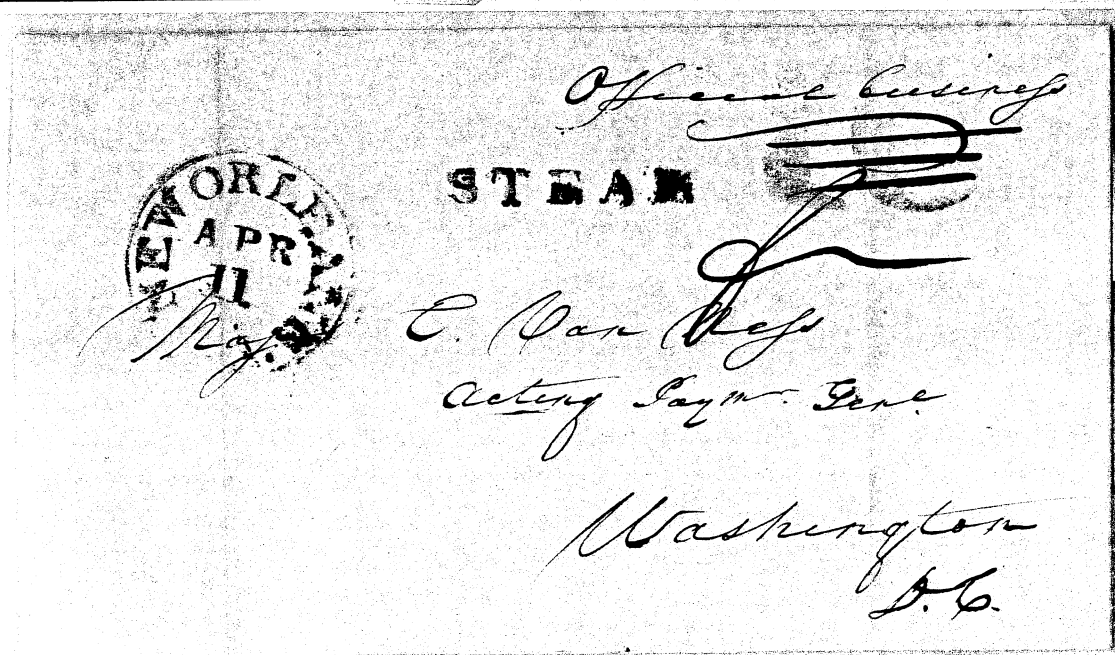 Official business
STEAM
NEW ORLEANS
APR
11
Maj. C. Van Ness
Acting Paymr. Genl.
Washington
D.C.